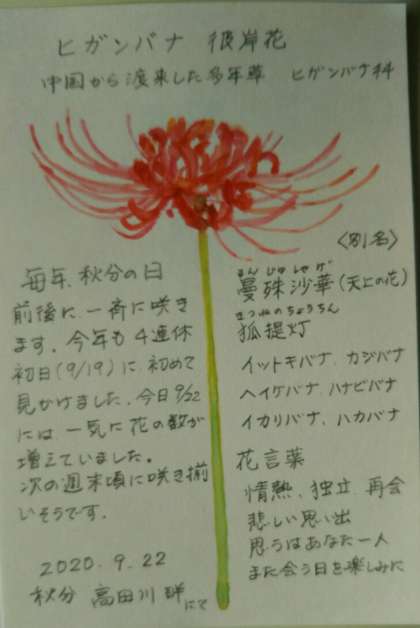 ヒガンバナ 彼岸花
中国から渡来した多年草 ヒガンバナ科
毎年、秋分の日
前後に、一斉に咲き
ます。今年も4連休
初日(9/19)に、初めて
見かけました。今日9/22
には一気に花の数が
増えていました。
次の週末頃に咲き揃
いそうです。
2020.9.22
秋分 高田川畔にて
〈別名〉
まんじゅしゃげ
曼殊沙華(天上の花)
きつねのちょうちん
狐提灯
イットキバナ、カジバナ
ヘイケバナ、ハナビバナ
イカリバナ、ハカバナ
花言葉
情熱、独立、再会
悲しい思い出
思うはあなた一人
また会う日を楽しみに